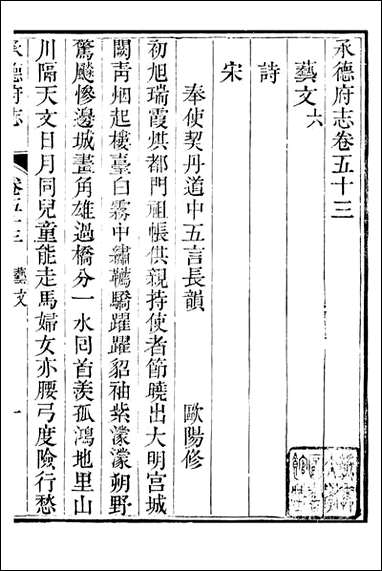 承德府志卷五十三
藝文六
詩
宋
奉使契丹道中五言長韻 歐陽修
初旭瑞霞烘都門祖帳供親持使者節曉出大明宮城
闕青烟起樓臺白霧中繡韉驕躍躍貂袖紫濛濛朔野
驚飇慘邊城畫角雄過橋分一水回首羨孤鴻地里山
川隔天文日月同兒童能走馬婦女亦腰弓度險行愁
承德府志 卷五十三 藝文 一